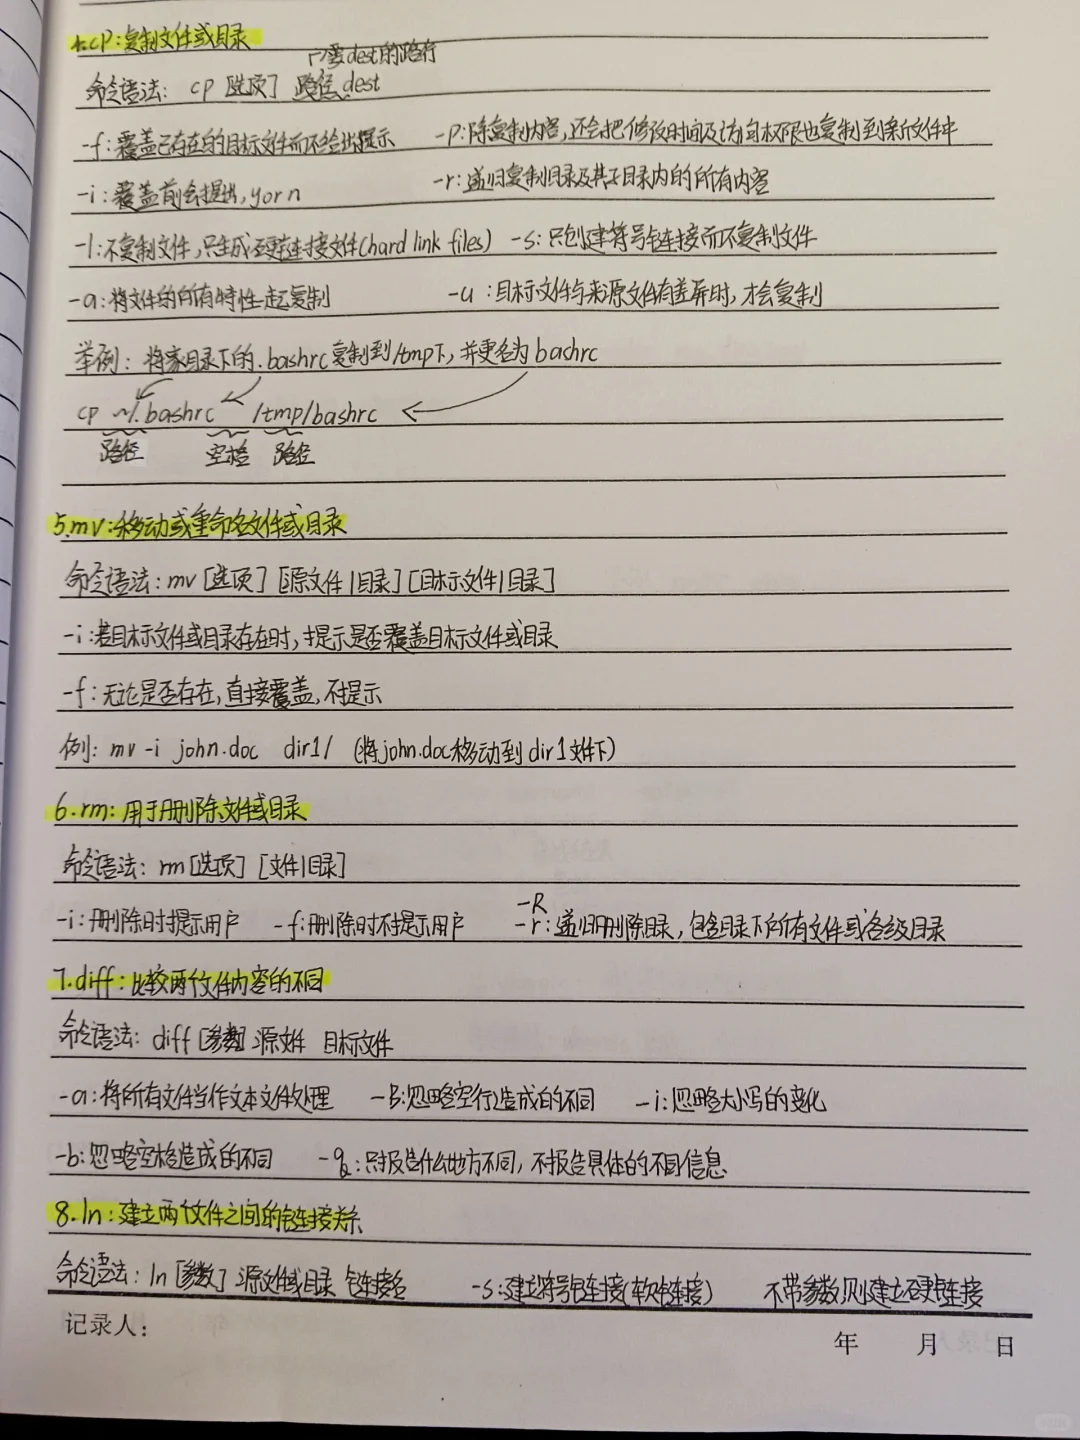 4.cp:复制文件或目录
→要dest的路径
命令语法: cp [选项] 路径 dest
-f:覆盖已存在的目标文件而不给出提示 -p:除复制内容,还会把修改时间及访问权限也复制到新文件中
-i:覆盖前会提出,y or n -r:递归复制目录及其子目录内的所有内容
-l:不复制文件,只生成硬链接文件(hard link files) -s:只创建符号链接而不复制文件
-a:将文件的所有特性一起复制 -u:目标文件与来源文件有差异时,才会复制
举例:将家目录下的.bashrc复制到/tmp下,并更名为bachrc
cp ~/.bashrc /tmp/bashrc
路径 空格 路径
5.mv:移动或重命名文件或目录
命令语法:mv [选项] [源文件|目录] [目标文件|目录]
-i:若目标文件或目录存在时,提示是否覆盖目标文件或目录
-f:无论是否存在,直接覆盖,不提示
例: mv -i john.doc dir1/ (将john.doc移动到dir1文件下)
6.rm:用于删除文件或目录
命令语法: rm [选项] [文件|目录]
-R
-i:删除时提示用户 -f:删除时不提示用户 -r:递归删除目录,包含目录下所有文件或各级目录
7.diff:比较两个文件内容的不同
命令语法: diff [参数] 源文件 目标文件
-a:将所有文件当作文本文件处理 -B:忽略空行造成的不同 -i:忽略大小写的变化
-b:忽略空格造成的不同 -q:只报告什么地方不同,不报告具体的不同信息
8.ln:建立两个文件之间的链接关系
命令语法:ln [参数] 源文件或目录 链接名 -s:建立符号链接(软链接) 不带参数则建立硬链接
记录人:
年 月 日